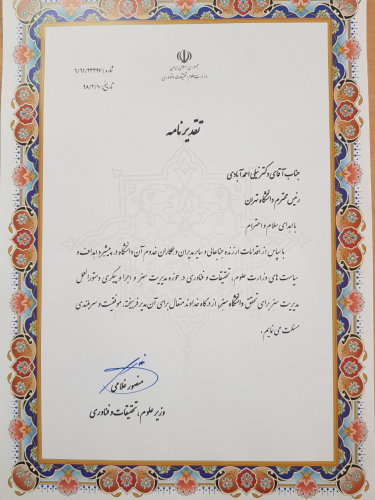 جمهوری اسلامی ایران
وزارت علوم، تحقیقات و فناوری
شماره: ۶/۶۱/۲۳۳۶۷
تاریخ: ۹۸/۲/۱۰
تقدیرنامه
جناب آقای دکتر نیلی احمدآبادی
رئیس محترم دانشگاه تهران
با اهدای سلام و احترام
با سپاس از اقدامات ارزنده جنابعالی و سایر مدیران و همکاران خدوم آن دانشگاه در پیشبرد اهداف و
سیاست های وزارت علوم، تحقیقات و فناوری در حوزه مدیریت سبز و اجرا و پیگیری دستورالعمل
مدیریت سبز برای تحقق دانشگاه سبز، از درگاه خداوند متعال برای آن مدیر فرهیخته، موفقیت و سربلندی
مسئلت می نمایم.
منصور غلامی
وزیر علوم، تحقیقات و فناوری